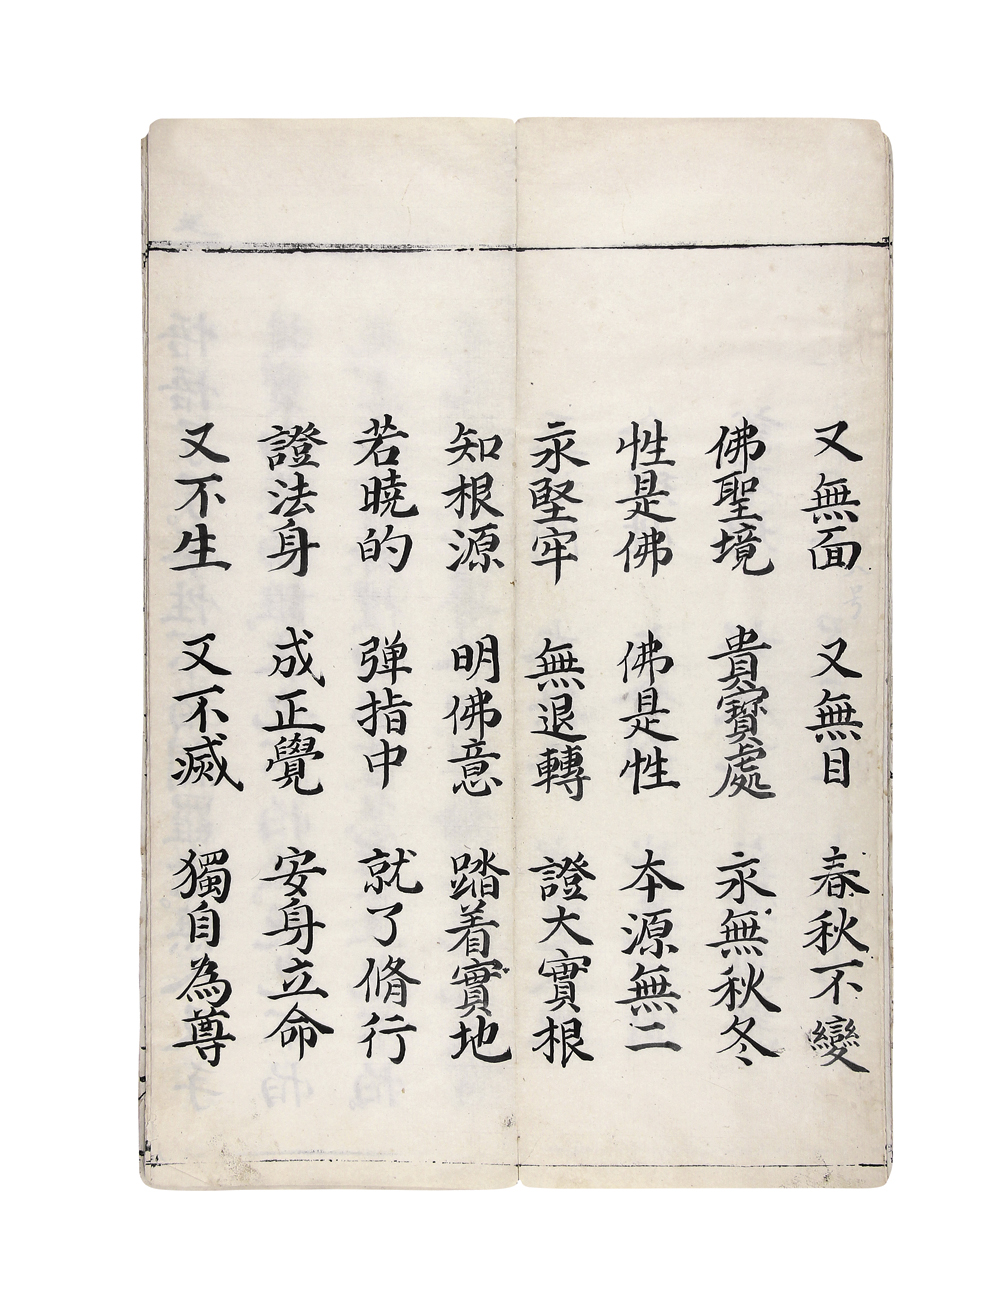 又無面　又無目　春秋不變
佛聖境　貴寳處　永無秋冬
性是佛　佛是性　本源無二
永堅牢　無退轉　證大實根
知根源　明佛意　踏着實地
若曉的　弹指中　就了脩行
證法身　成正覺　安身立命
又不生　又不滅　獨自為尊